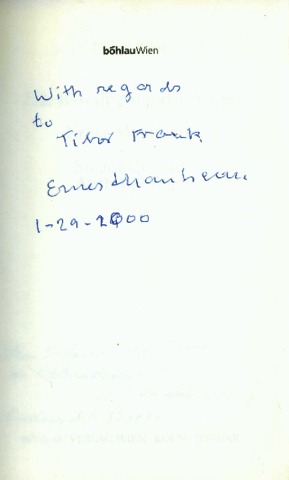 böhlauWien
With regards
to
Tibor Frank
Ernest Manheim
1-29-2000